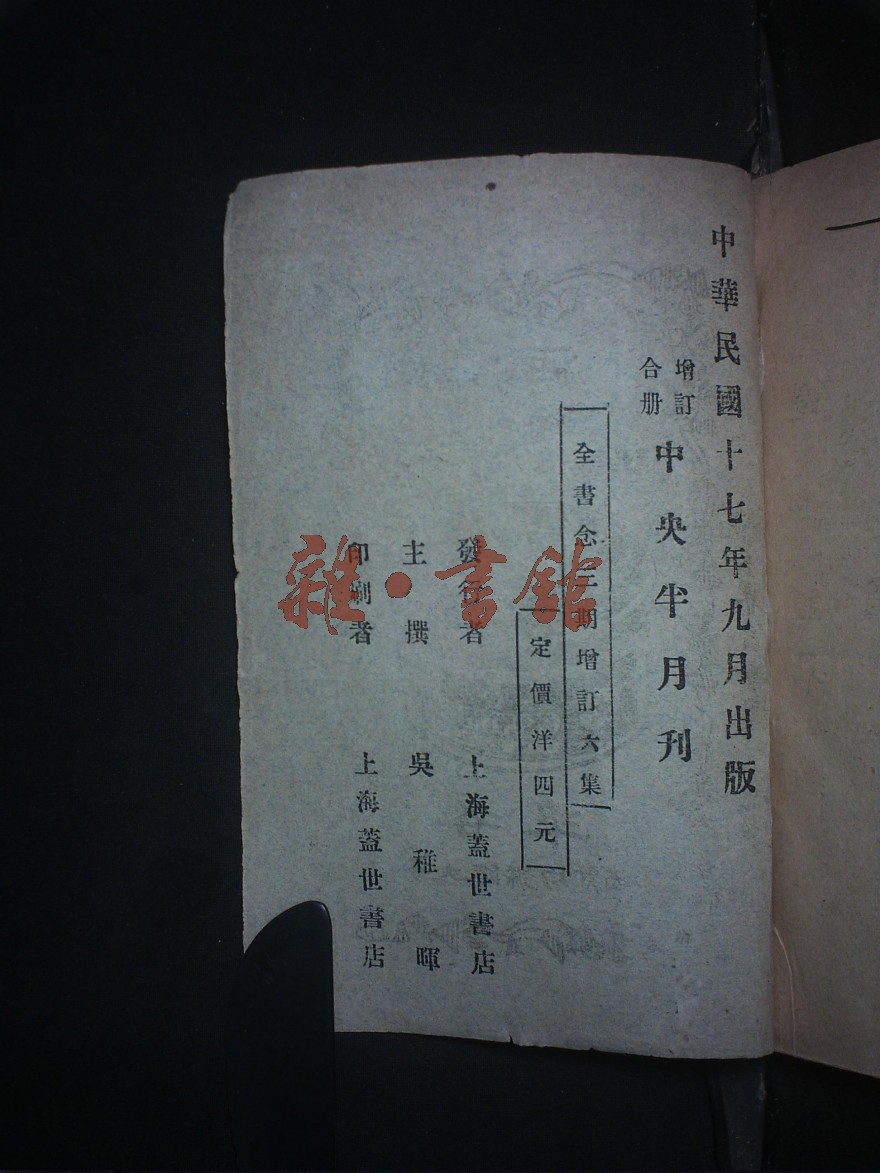 中華民國十七年九月出版
增訂
合册
中央半月刊
全書念三期增訂六集
定價洋四元
發行者 上海蓋世書店
主撰 吳稚暉
印刷者 上海蓋世書店
雜·書館